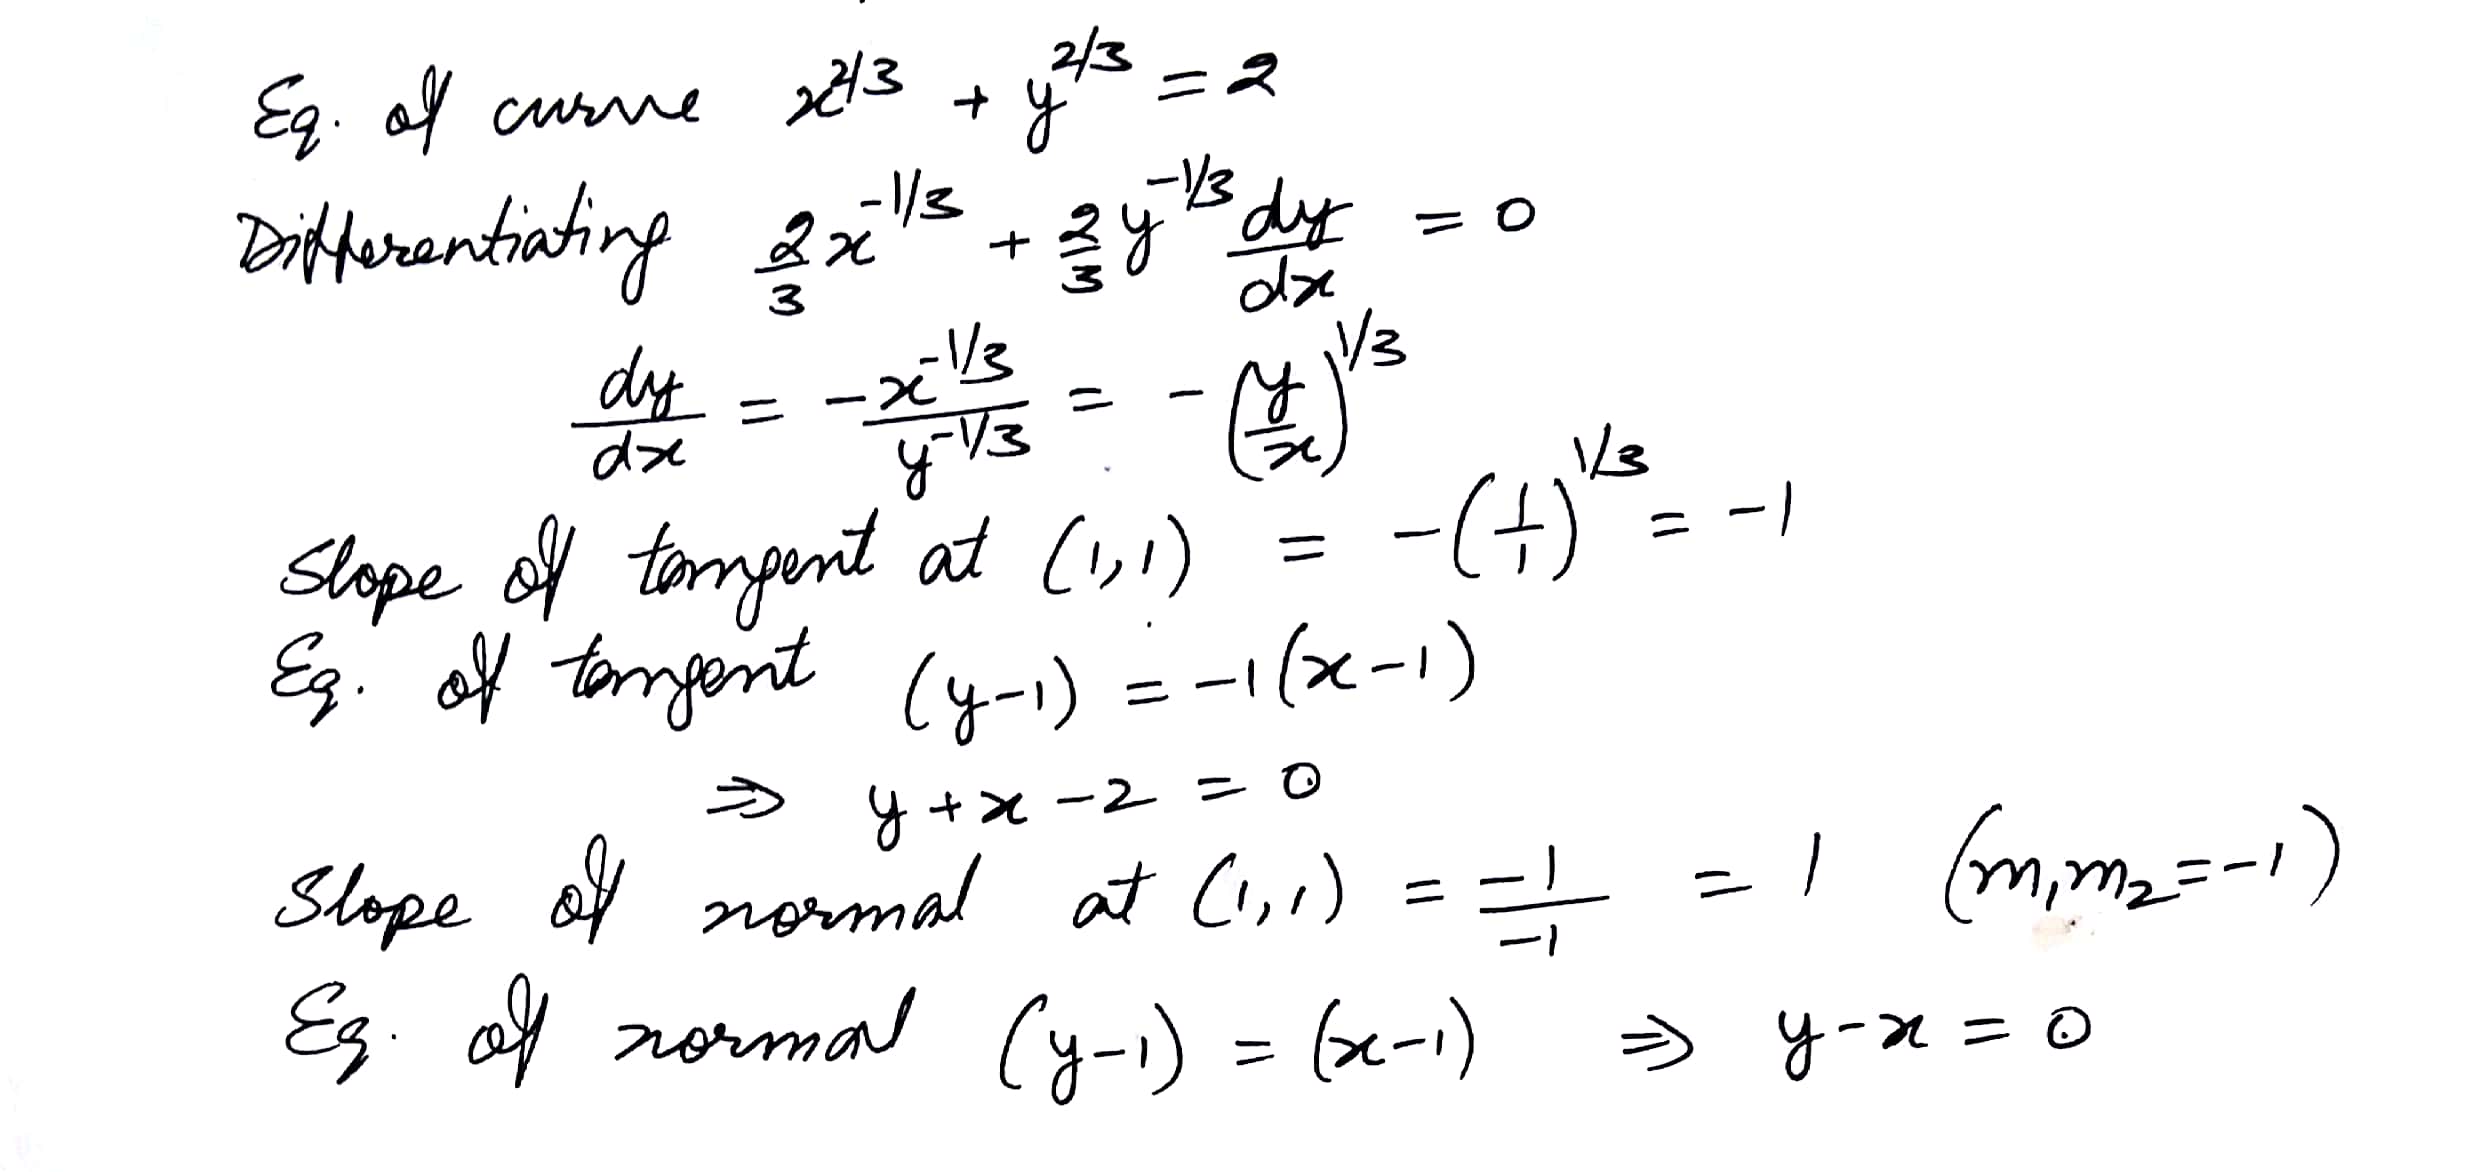 Eq. of curve x^{2/3} + y^{2/3} = 2
Differentiating \frac{2}{3} x^{-1/3} + \frac{2}{3} y^{-1/3} \frac{dy}{dx} = 0
\frac{dy}{dx} = \frac{-x^{-1/3}}{y^{-1/3}} = -\left(\frac{y}{x}\right)^{1/3}
Slope of tangent at (1,1) = -\left(\frac{1}{1}\right)^{1/3} = -1
Eq. of tangent (y-1) = -1(x-1)
⇒ y+x-2 = 0
Slope of normal at (1,1) = \frac{-1}{-1} = 1 (m₁m₂=-1)
Eq. of normal (y-1) = (x-1) ⇒ y-x = 0